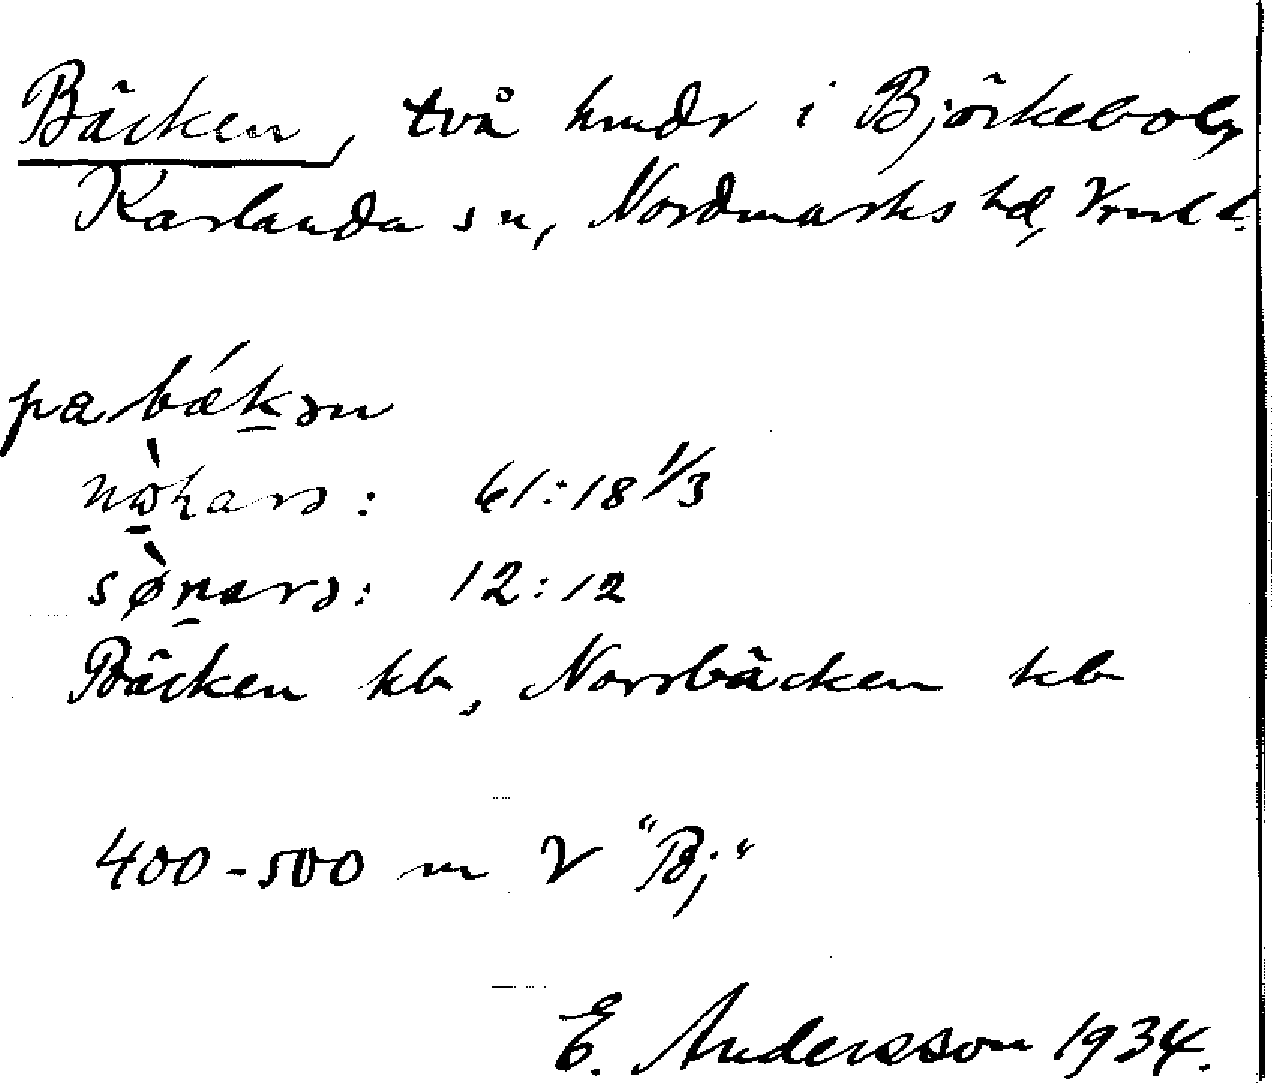 Bäcken, två hmdr i Björkebol,
Karlanda sn, Nordmarks hd, Vrml l.
pa bǽk̲ən
nɷ̲̀harə: 61:18 1/3
sø̀n̲arə: 12:12
Bäcken kb, Norrbäcken kb
400-500 m V "Bj"
E. Andersson 1934.